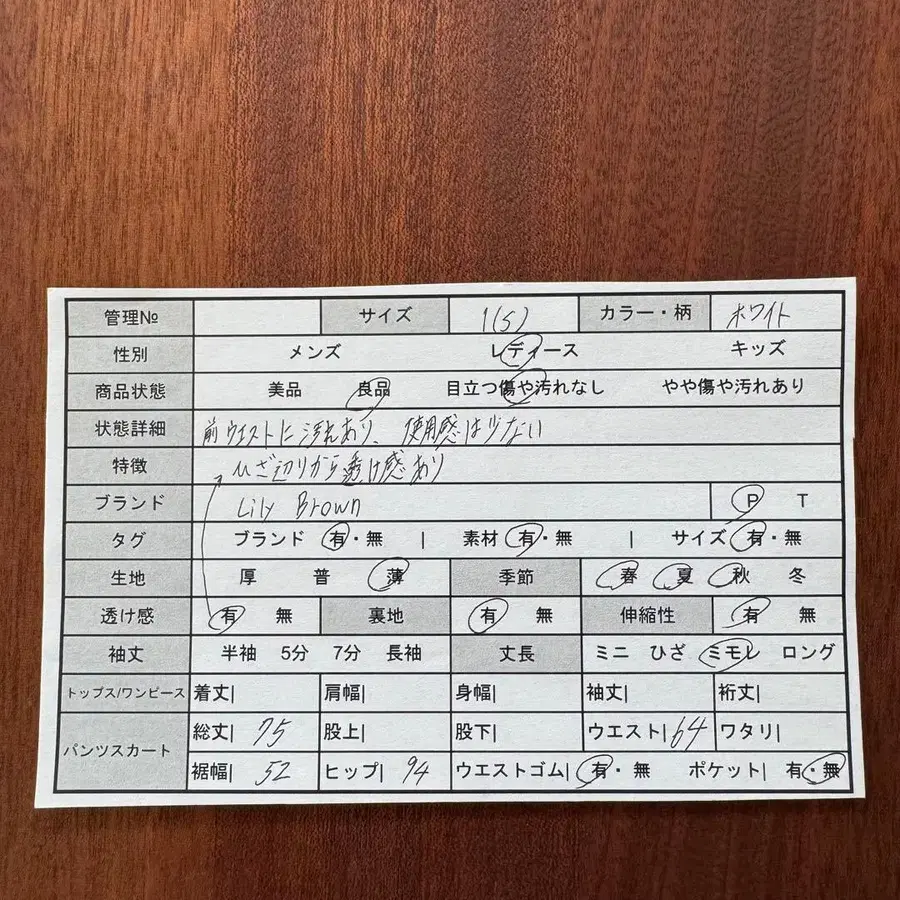 管理№ サイズ 1(S) カラー・柄 ホワイト
性別 メンズ レディース キッズ
商品状態 美品 良品 目立つ傷や汚れなし やや傷や汚れあり
状態詳細 前ウエストに汚れあり、使用感は少ない
特徴 ひざ辺りから透け感あり
ブランド Lily Brown P T
タグ ブランド 有・無 | 素材 有・無 | サイズ 有・無
生地 厚 普 薄 季節 春 夏 秋 冬
透け感 有 無 裏地 有 無 伸縮性 有 無
袖丈 半袖 5分 7分 長袖 丈長 ミニ ひざ ミモレ ロング
トップス/ワンピース 着丈| 肩幅| 身幅| 袖丈| 裄丈|
パンツスカート 総丈| 75 股上| 股下| ウエスト| 64 ワタリ|
裾幅| 52 ヒップ| 94 ウエストゴム| 有・無 ポケット| 有・無